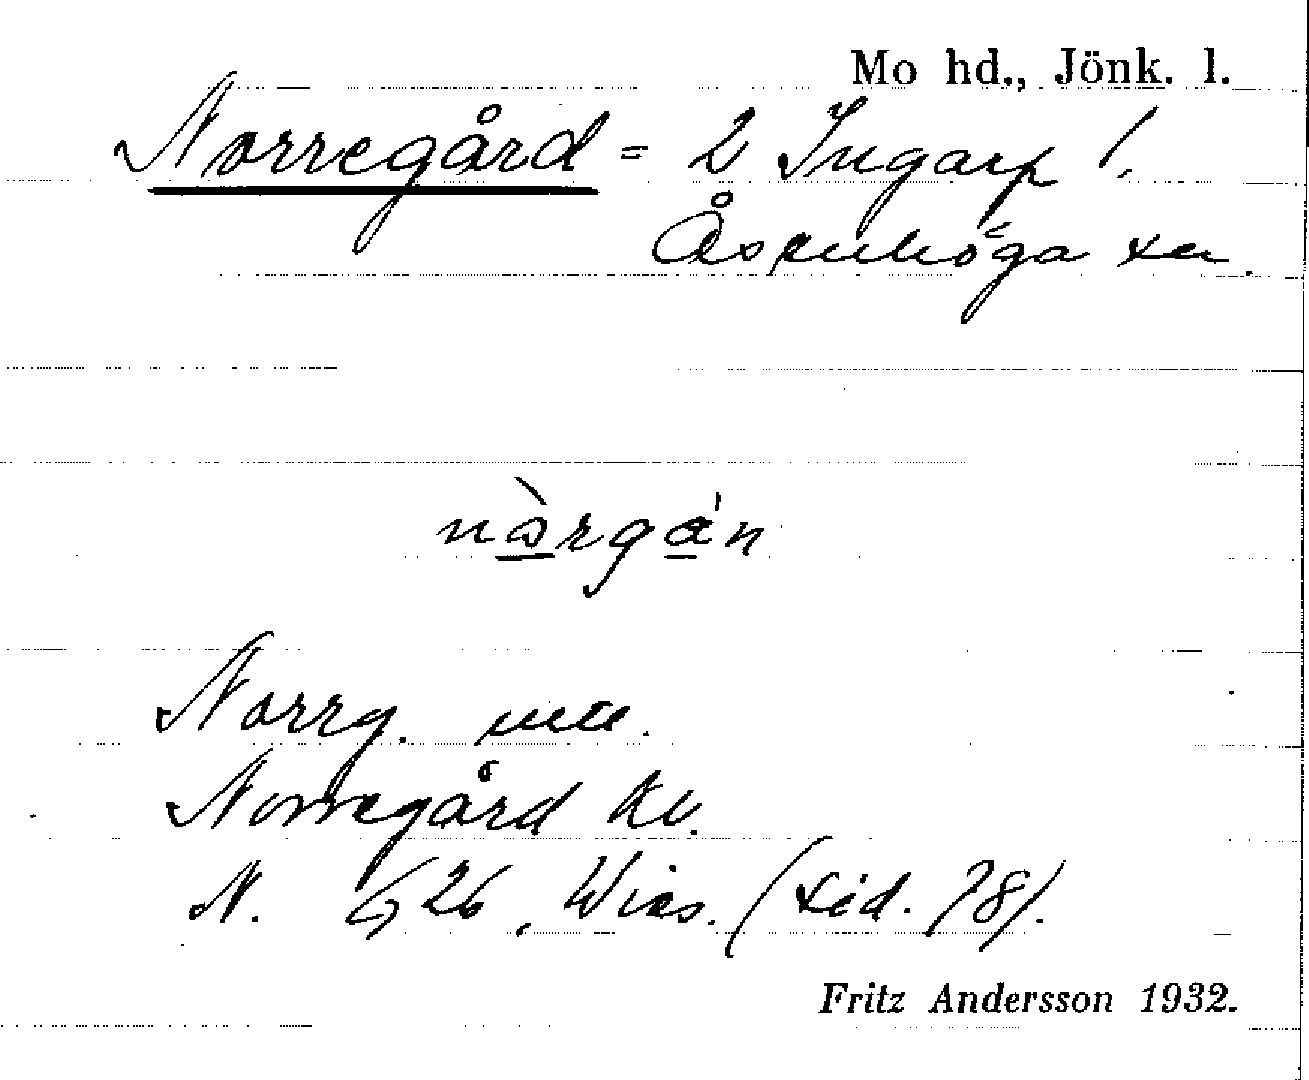 Mo hd., Jönk. l.
Norregård = 2 Ingarp /.
Åsenhöga sn.
nòrgán
Norrg. utt.
Norregård kv.
N. G 26, Wies. (sid. 78).
Fritz Andersson 1932.